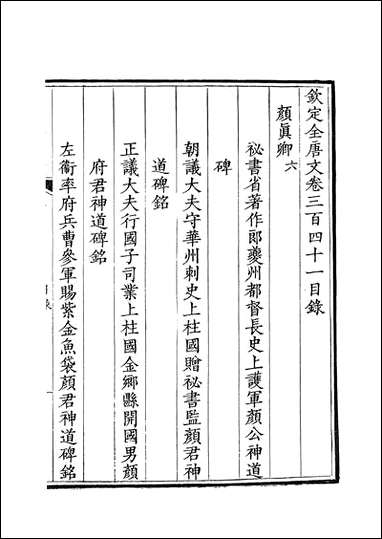 欽定全唐文卷三百四十一目錄
顏眞卿 六
祕書省著作郎夔州都督長史上護軍顏公神道
碑
朝議大夫守華州刺史上柱國贈祕書監顏君神
道碑銘
正議大夫行國子司業上柱國金鄉縣開國男顏
府君神道碑銘
左衛率府兵曹參軍賜紫金魚袋顏君神道碑銘
目錄
一